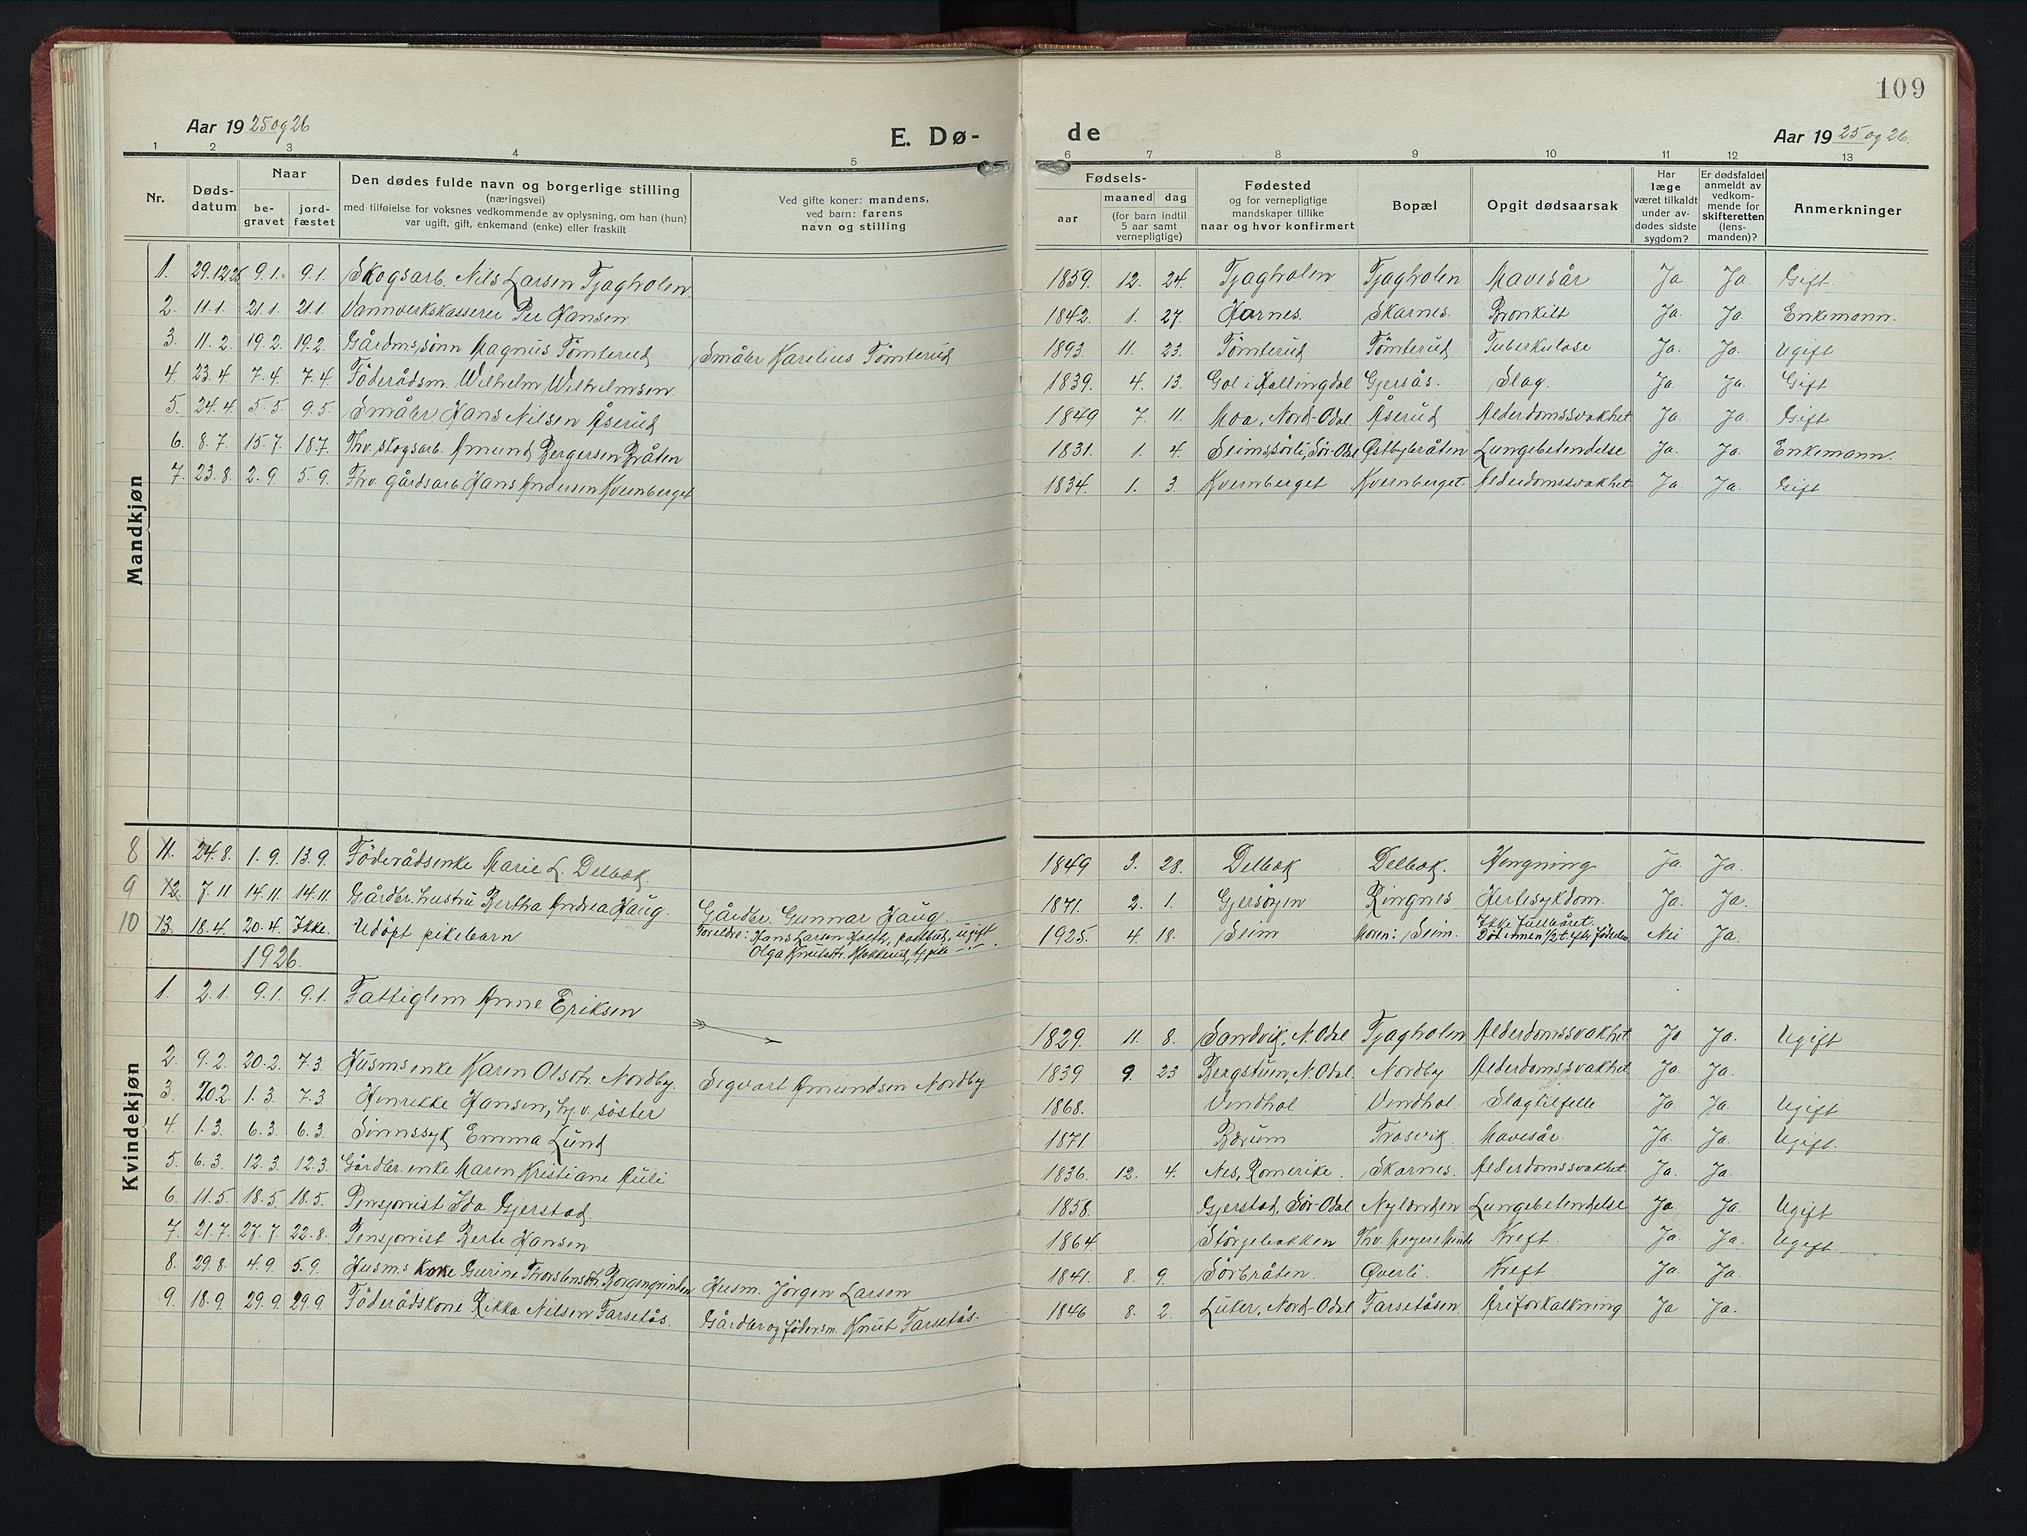 109
Aar 19 25 og 26
E. Dø-
de
Aar 19 25 og 26.
1 2 3 4 5 6 7 8 9 10 11 12 13
Nr.
Døds-
datum
Naar
be-
gravet
jord-
fæstet
Den dødes fulde navn og borgerlige stilling
(næringsvei)
med tilføielse for voksnes vedkommende av oplysning, om han (hun)
var ugift, gift, enkemand (enke) eller fraskilt
Ved gifte koner: mandens,
ved barn: farens
navn og stilling
Fødsels-
aar
maaned dag
(for barn indtil
5 aar samt
vernepligtige)
Fødested
og for vernepligtige
mandskaper tillike
naar og hvor konfirmert
Bopæl
Opgit dødsaarsak
Har
læge
været tilkaldt
under av-
dødes sidste
sygdom?
Er dødsfaldet
anmeldt av
vedkom-
mende for
skifteretten
(lens-
manden)?
Anmerkninger
Mandkjøn
1. 29.12.25 9.1. 9.1. Skogsarb. Nils Larsen Tjagholen. 1859. 12. 24. Tjagholen Tjagholen Mavesår Ja Ja. Gift.
2. 11.1. 21.1. 21.1. Vannverkskasserer Per Hansen. 1842. 1. 27. Skarnes. Bronkitt Ja. Ja. Enkemann.
3. 11.2. 19.2. 19.2. Gårdms.sønn Magnus Tømterud Småbr Karelius Tømterud 1893. 11. 23. Tømterud Tømterud Tuberkulose Ja. Ja. Ugift
4. 23.4. 7.4. 7.4. Föderådsm. Wilhelm Wilhelmsen. 1839. 4. 13. Gol i Hallingdal Gjersås. Slag. Ja. Ja. Gift
5. 24.4. 5.5. 9.5. Småbr Hans Nilsen Åserud 1849 7. 11. Moa, Nord-Odal Åserud Alderdomssvakhet Ja. Ja. Gift
6. 8.7. 15.7. 18.7. Fhv. skogsarb. Amund Bergersen Bråten 1831. 1. 4. Seimssörli, Sör-Odal Østbybråten Lungebetendelse Ja. Ja. Enkemann.
7. 23.8. 2.9. 5.9. Fhv. gårdsarb. Hans Andersen Kvernberget 1834. 1. 3. Kvernberget Kvernberget Alderdomssvakhet Ja. Ja. Gift
Kvindekjøn
8 11. 24.8. 1.9. 13.9. Föderådsenke Marie L. Delbæk. 1849 3. 28. Delbæk Delbæk. Hengning Ja. Ja.
9 12. 7.11 14.11. 14.11. Gårdbr. hustru Bertha Andrea Haug. Gårdbr. Gunnar Haug. 1871. 2. 1. Gjersøyen Ringnes Hertesykdom. Ja. Ja.
10 13. 18.4. 20.4. Ikke. Udöpt pikebarn Foreldre: Hans Larsen Holth, postbud, ugift 1925. 4. 18. Seim Moren: Seim. Ikke fullbåret. Nei Ja.
Olga Knutsdtr. Klokkerud, tj. pike —"— Död innen 1/2 t. eftr födselen
1926.
1. 2.1. 9.1. 9.1. Fattiglem Anne Eriksen 1829. 11. 8. Sandvik, N. Odal Tjagholen Alderdomssvakhet Ja Ja. Ugift
2. 9.2. 20.2. 7.3. Husms enke Karen Olsdtr. Nordby. Segvart Amundsen Nordby 1839 9. 23 Bergstuen, N. Odal. Nordby Alderdomssvakhet Ja. Ja.
3. 20.2. 1.3. 7.3 Henrikke Hansen, hj.v. söster 1868. Vendhol Vendhol. Slagtilfelle Ja. Ja. Ugift
4. 1.3. 6.3. 6.3. Sinnssyk Emma Lund 1871 Bærum Trosvik. Mavesår. Ja. Ja. Ugift.
5. 6.3. 12.3. 12.3. Gårdbr. enke Maren Kristiane Auli 1836. 12. 4. Nes, Romerike. Skarnes. Alderdomssvakhet. Ja. Ja.
6. 11.5. 18.5. 18.5. Pensjonist Ida Gjerstad. 1858. Gjerstad, Sör-Odal Nylænden Lungebetendelse Ja Ja. Ugift
7. 21.7. 27.7. 22.8. Pensjonist Berte Hansen 1864. Fhv. Kreft. Ja. Ja. Ugift.
8. 29.8. 4.9. 5.9. Husms kone Gurine Thorstensdtr. Borgengrinden Husm. Jörgen Larsen 1841. 8. 9. Sörbråten. Øverli. Kreft Ja. Ja.
9. 18.9. 29.9. 29.9. Föderådskone Rikka Nilsen Tarsetås. Gårdbr og födersm. Knut Tarsetås. 1846 8. 2. Luker, Nord-Odal Tarsetåsen Åreforkalkning Ja Ja.